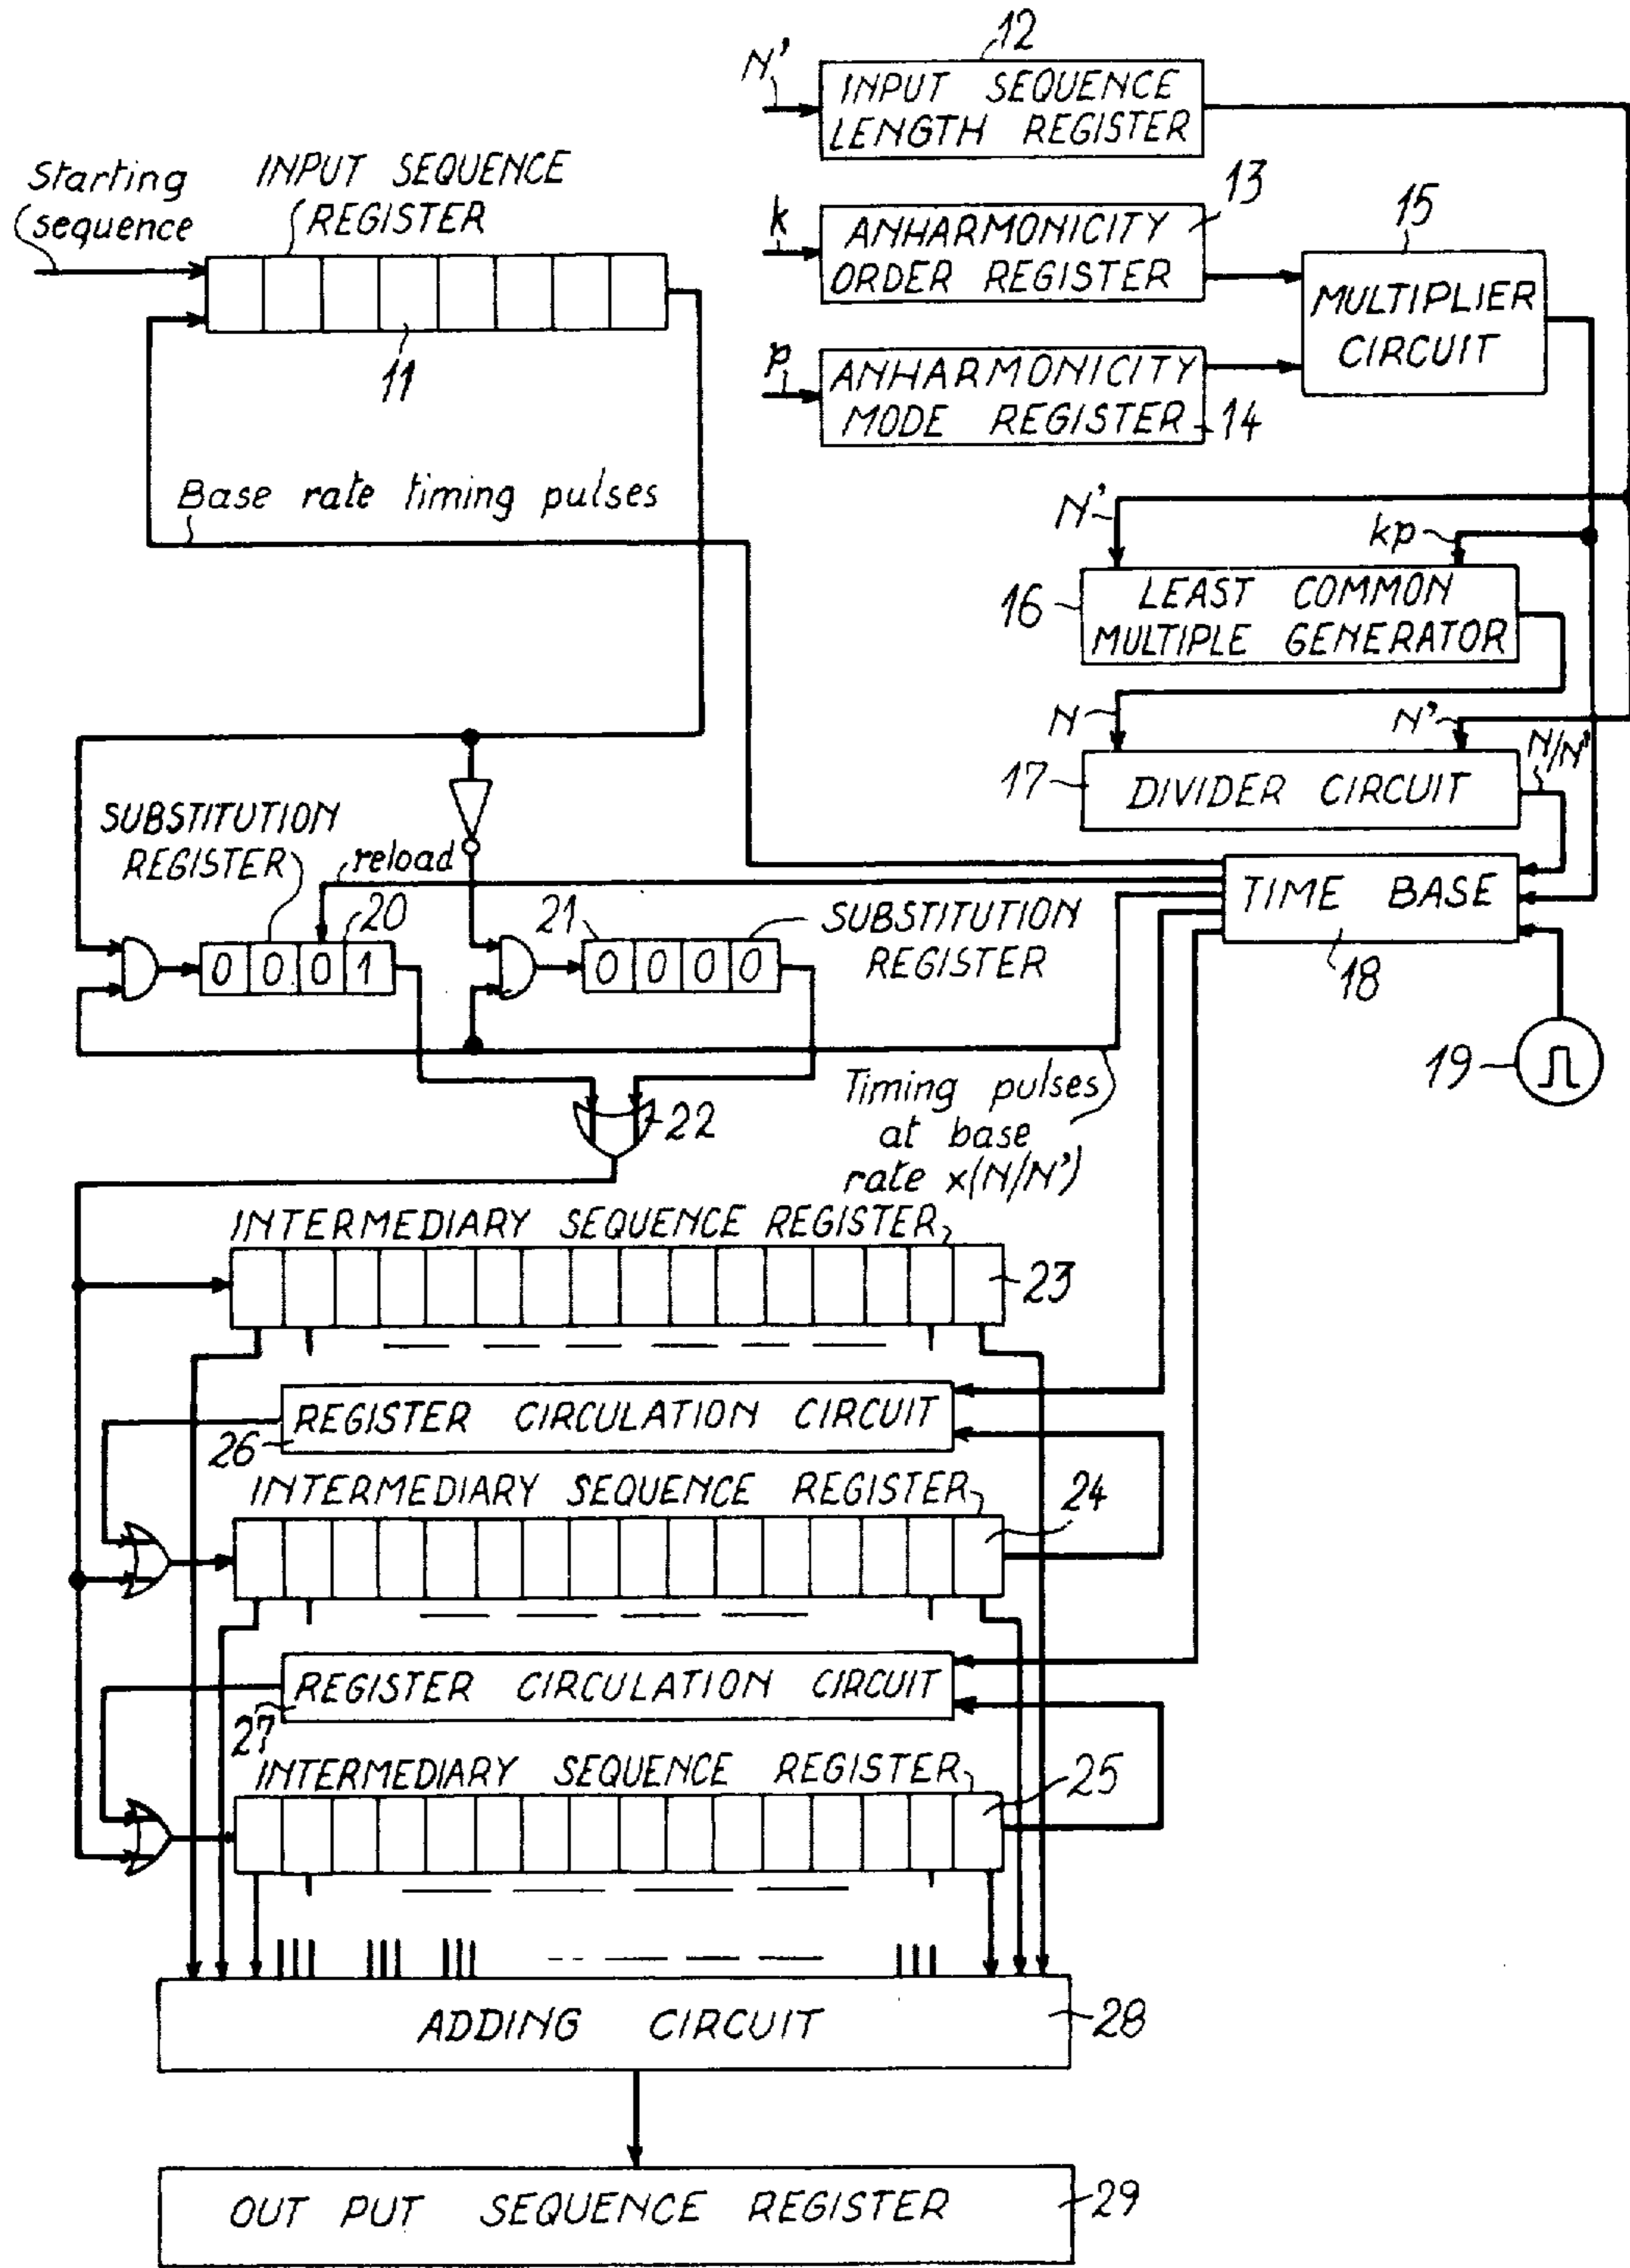 12
N'
INPUT SEQUENCE
LENGTH REGISTER
Starting
sequence
INPUT SEQUENCE
REGISTER
11
k
ANHARMONICITY
ORDER REGISTER
13
15
MULTIPLIER
CIRCUIT
p
ANHARMONICITY
MODE REGISTER
14
Base rate timing pulses
N'
kp
16
LEAST COMMON
MULTIPLE GENERATOR
N
N'
N/N'
17
DIVIDER CIRCUIT
SUBSTITUTION
REGISTER
reload
20
0 0 0 1
21
0 0 0 0
SUBSTITUTION
REGISTER
TIME BASE
18
19
22
Timing pulses
at base
rate x(N/N')
INTERMEDIARY SEQUENCE REGISTER
23
REGISTER CIRCULATION CIRCUIT
26
INTERMEDIARY SEQUENCE REGISTER
24
REGISTER CIRCULATION CIRCUIT
27
INTERMEDIARY SEQUENCE REGISTER
25
ADDING CIRCUIT
28
OUT PUT SEQUENCE REGISTER
29